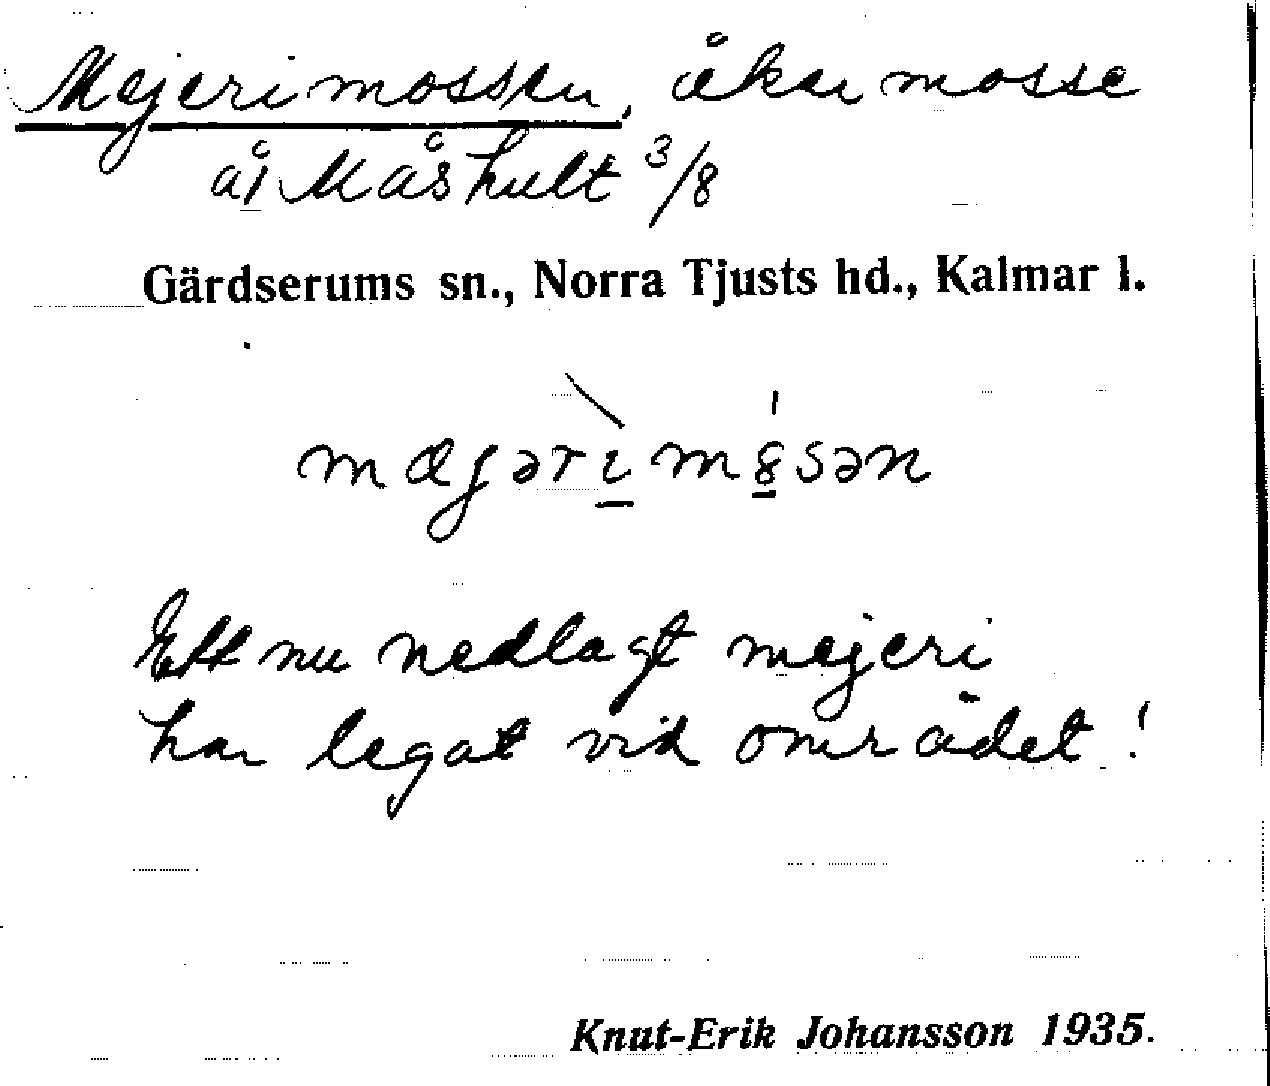 Mejerimossen, åkermosse
å Måshult 3/8
Gärdserums sn., Norra Tjusts hd., Kalmar l.
Ett nu nedlagt mejeri
har legat vid området!
Knut-Erik Johansson 1935.